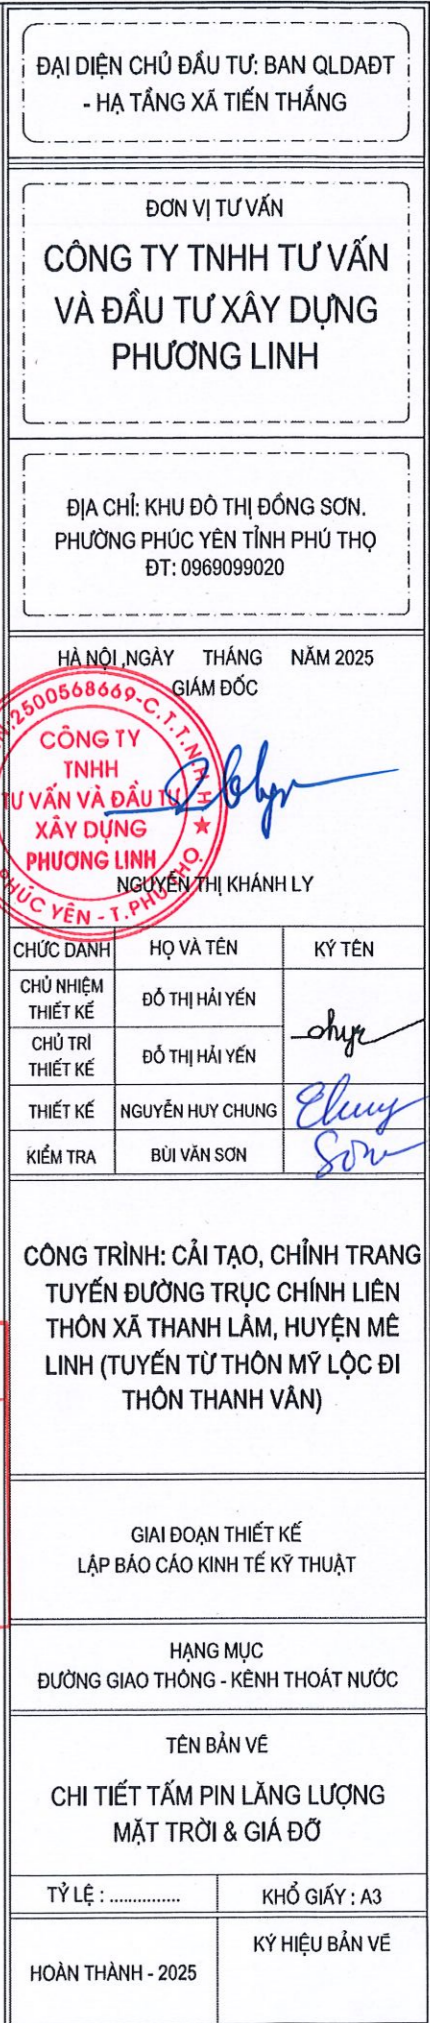 ĐẠI DIỆN CHỦ ĐẦU TƯ: BAN QLDAĐT
- HẠ TẦNG XÃ TIẾN THẮNG
ĐƠN VỊ TƯ VẤN
CÔNG TY TNHH TƯ VẤN
VÀ ĐẦU TƯ XÂY DỰNG
PHƯƠNG LINH
ĐỊA CHỈ: KHU ĐÔ THỊ ĐỒNG SƠN.
PHƯỜNG PHÚC YÊN TỈNH PHÚ THỌ
ĐT: 0969099020
HÀ NỘI ,NGÀY THÁNG NĂM 2025
GIÁM ĐỐC
N:2500568669-C.T.T.N.H.H
CÔNG TY
TNHH
TƯ VẤN VÀ ĐẦU TƯ
XÂY DỰNG
PHƯƠNG LINH
PHÚC YÊN - T.PHÚ THỌ
NGUYỄN THỊ KHÁNH LY
CHỨC DANH HỌ VÀ TÊN KÝ TÊN
CHỦ NHIỆM
THIẾT KẾ
ĐỖ THỊ HẢI YẾN
CHỦ TRÌ
THIẾT KẾ
ĐỖ THỊ HẢI YẾN
THIẾT KẾ NGUYỄN HUY CHUNG
KIỂM TRA BÙI VĂN SƠN Sơn
CÔNG TRÌNH: CẢI TẠO, CHỈNH TRANG
TUYẾN ĐƯỜNG TRỤC CHÍNH LIÊN
THÔN XÃ THANH LÂM, HUYỆN MÊ
LINH (TUYẾN TỪ THÔN MỸ LỘC ĐI
THÔN THANH VÂN)
GIAI ĐOẠN THIẾT KẾ
LẬP BÁO CÁO KINH TẾ KỸ THUẬT
HẠNG MỤC
ĐƯỜNG GIAO THÔNG - KÊNH THOÁT NƯỚC
TÊN BẢN VẼ
CHI TIẾT TẤM PIN LĂNG LƯỢNG
MẶT TRỜI & GIÁ ĐỠ
TỶ LỆ : ............... KHỔ GIẤY : A3
HOÀN THÀNH - 2025
KÝ HIỆU BẢN VẼ